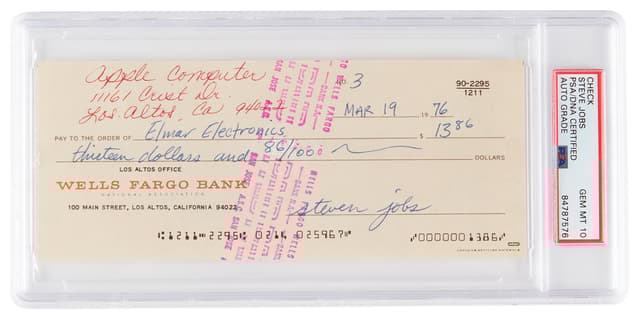 Apple Computer
11161 Crist Dr.
Los Altos, Ca
No 3
90-2295
1211
MAR 19 1976
PAY TO THE ORDER OF Elmar Electronics $ 13 86
thirteen dollars and 86/100 DOLLARS
LOS ALTOS OFFICE
WELLS FARGO BANK
NATIONAL ASSOCIATION
100 MAIN STREET, LOS ALTOS, CALIFORNIA 94022
steven jobs
1211 2295 0214 025967 0000001386
CHECK
STEVE JOBS
PSA/DNA CERTIFIED
AUTO GRADE
PSA
GEM MT 10
84787576